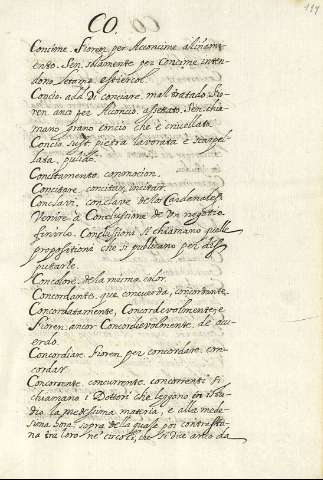 CO.
Concime. Fioren. per Acconcime aliñam
ento. Sen. solamente per Concime, inten
dono, letame, estiercol.
Concio. add. Di conciare, maltratado. Fio
ren. anco per Acconcio, assettato. Sen. chia
mano grano concio che è crivellato
Concio. sust. pietra lavorata è scarpel
lata, pulido.
Concitamento. conmocion.
Concitare. concitar, incitar.
Conclavi. conclave de los Cardenales
Venire à Conclusione de un negotio.
finirlo. Conclusioni si chiamano quelle
propositioni che si publicano per dis
putarle.
Concolore. de la misma color.
Concordante. que concuerda, concordante.
Concordatamente, Concordevolmente, e
Fioren. ancor Concordievolmente. de acu
erdo.
Concordiare Fioren per concordare. con
cordar.
Concorrente. concurrente. concorrenti si
chiamano i Dottori che leggono in istu
dio la medessima materia, e alla mede
sima hora, sopra della quale poi contrasta
no trà loro ne' circoli, che si dice anco da